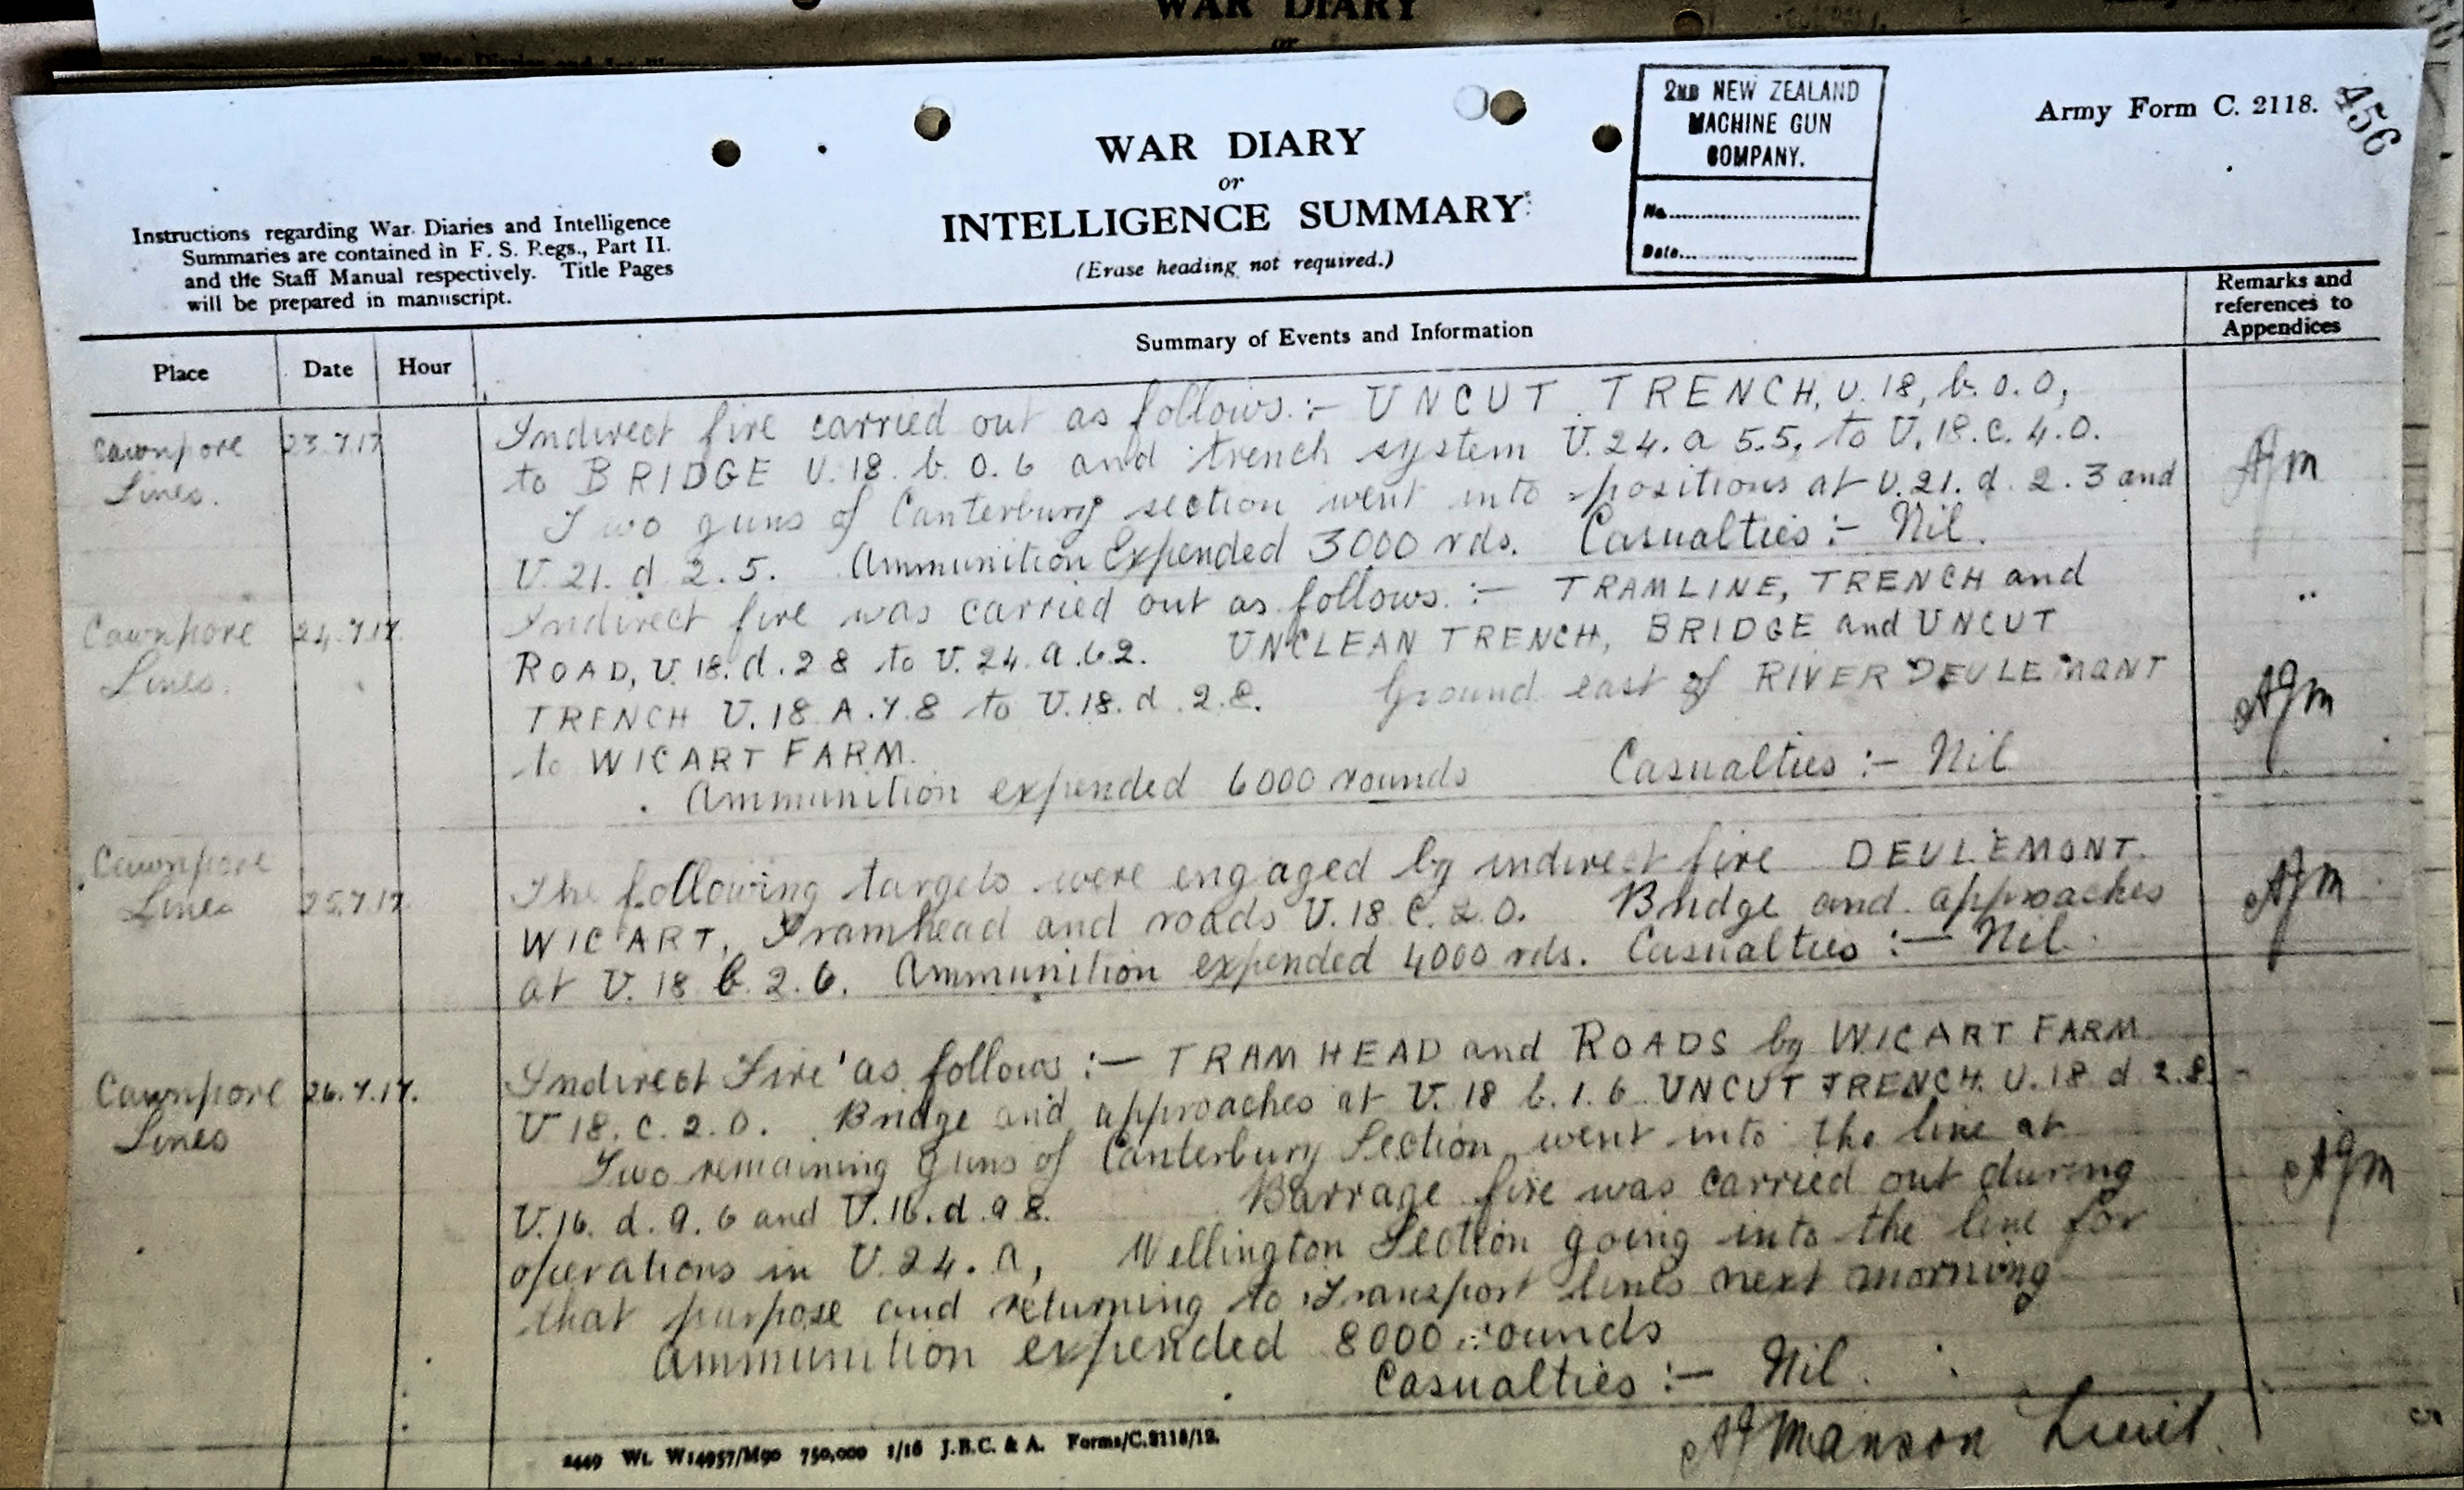 WAR DIARY
or
Army Form C. 2118.
456
2ND NEW ZEALAND
MACHINE GUN
COMPANY.
No.
Date
WAR DIARY
or
INTELLIGENCE SUMMARY
(Erase heading not required.)
Instructions regarding War Diaries and Intelligence
Summaries are contained in F. S. Regs., Part II.
and the Staff Manual respectively. Title Pages
will be prepared in manuscript.
Place Date Hour Summary of Events and Information Remarks and references to Appendices
Cawnpore Lines. 23.7.17
Indirect fire carried out as follows :- UNCUT TRENCH, U.18, b. 0.0,
to BRIDGE U.18. b. 0.6 and trench system U.24. a 5.5, to U.18.c. 4.0.
Two guns of Canterbury section went into positions at U.21. d. 2.3 and
U.21. d 2.5. Ammunition Expended 3000 rds. Casualties :- Nil.
AJM
Cawnpore Lines. 24.7.17.
Indirect fire was carried out as follows :- TRAMLINE, TRENCH and
ROAD, U.18.d.28 to U.24.a.62. UNCLEAN TRENCH, BRIDGE and UNCUT
TRENCH U.18 A.7.8 to U.18.d.2.8. Ground east of RIVER DEULEMONT
to WICART FARM.
Ammunition expended 6000 rounds Casualties :- Nil
AJM
Cawnpore Lines 25.7.17.
The following targets were engaged by indirect fire DEULEMONT.
WICART, Tramhead and roads U.18 C.2.0. Bridge and approaches
at U.18 b.2.6. Ammunition expended 4000 rds. Casualties :- Nil.
AJM
Cawnpore Lines 26.7.17.
Indirect Fire as follows :- TRAM HEAD and ROADS by WICART FARM
U 18. c. 2.0. Bridge and approaches at U.18 b.1.6 UNCUT TRENCH. U.18 d 2.8.
Two remaining guns of Canterbury Section went into the line at
U.16. d.9.6 and U.16.d.98. Barrage fire was carried out during
operations in U.24.A, Wellington Section going into the line for
that purpose and returning to Transport lines next morning
Ammunition expended 8000 rounds
Casualties :- Nil.
AJM
AJ Manson Lieut.
2449 Wt. W14957/M90 750,000 1/16 J.B.C. & A. Forms/C.2118/12.